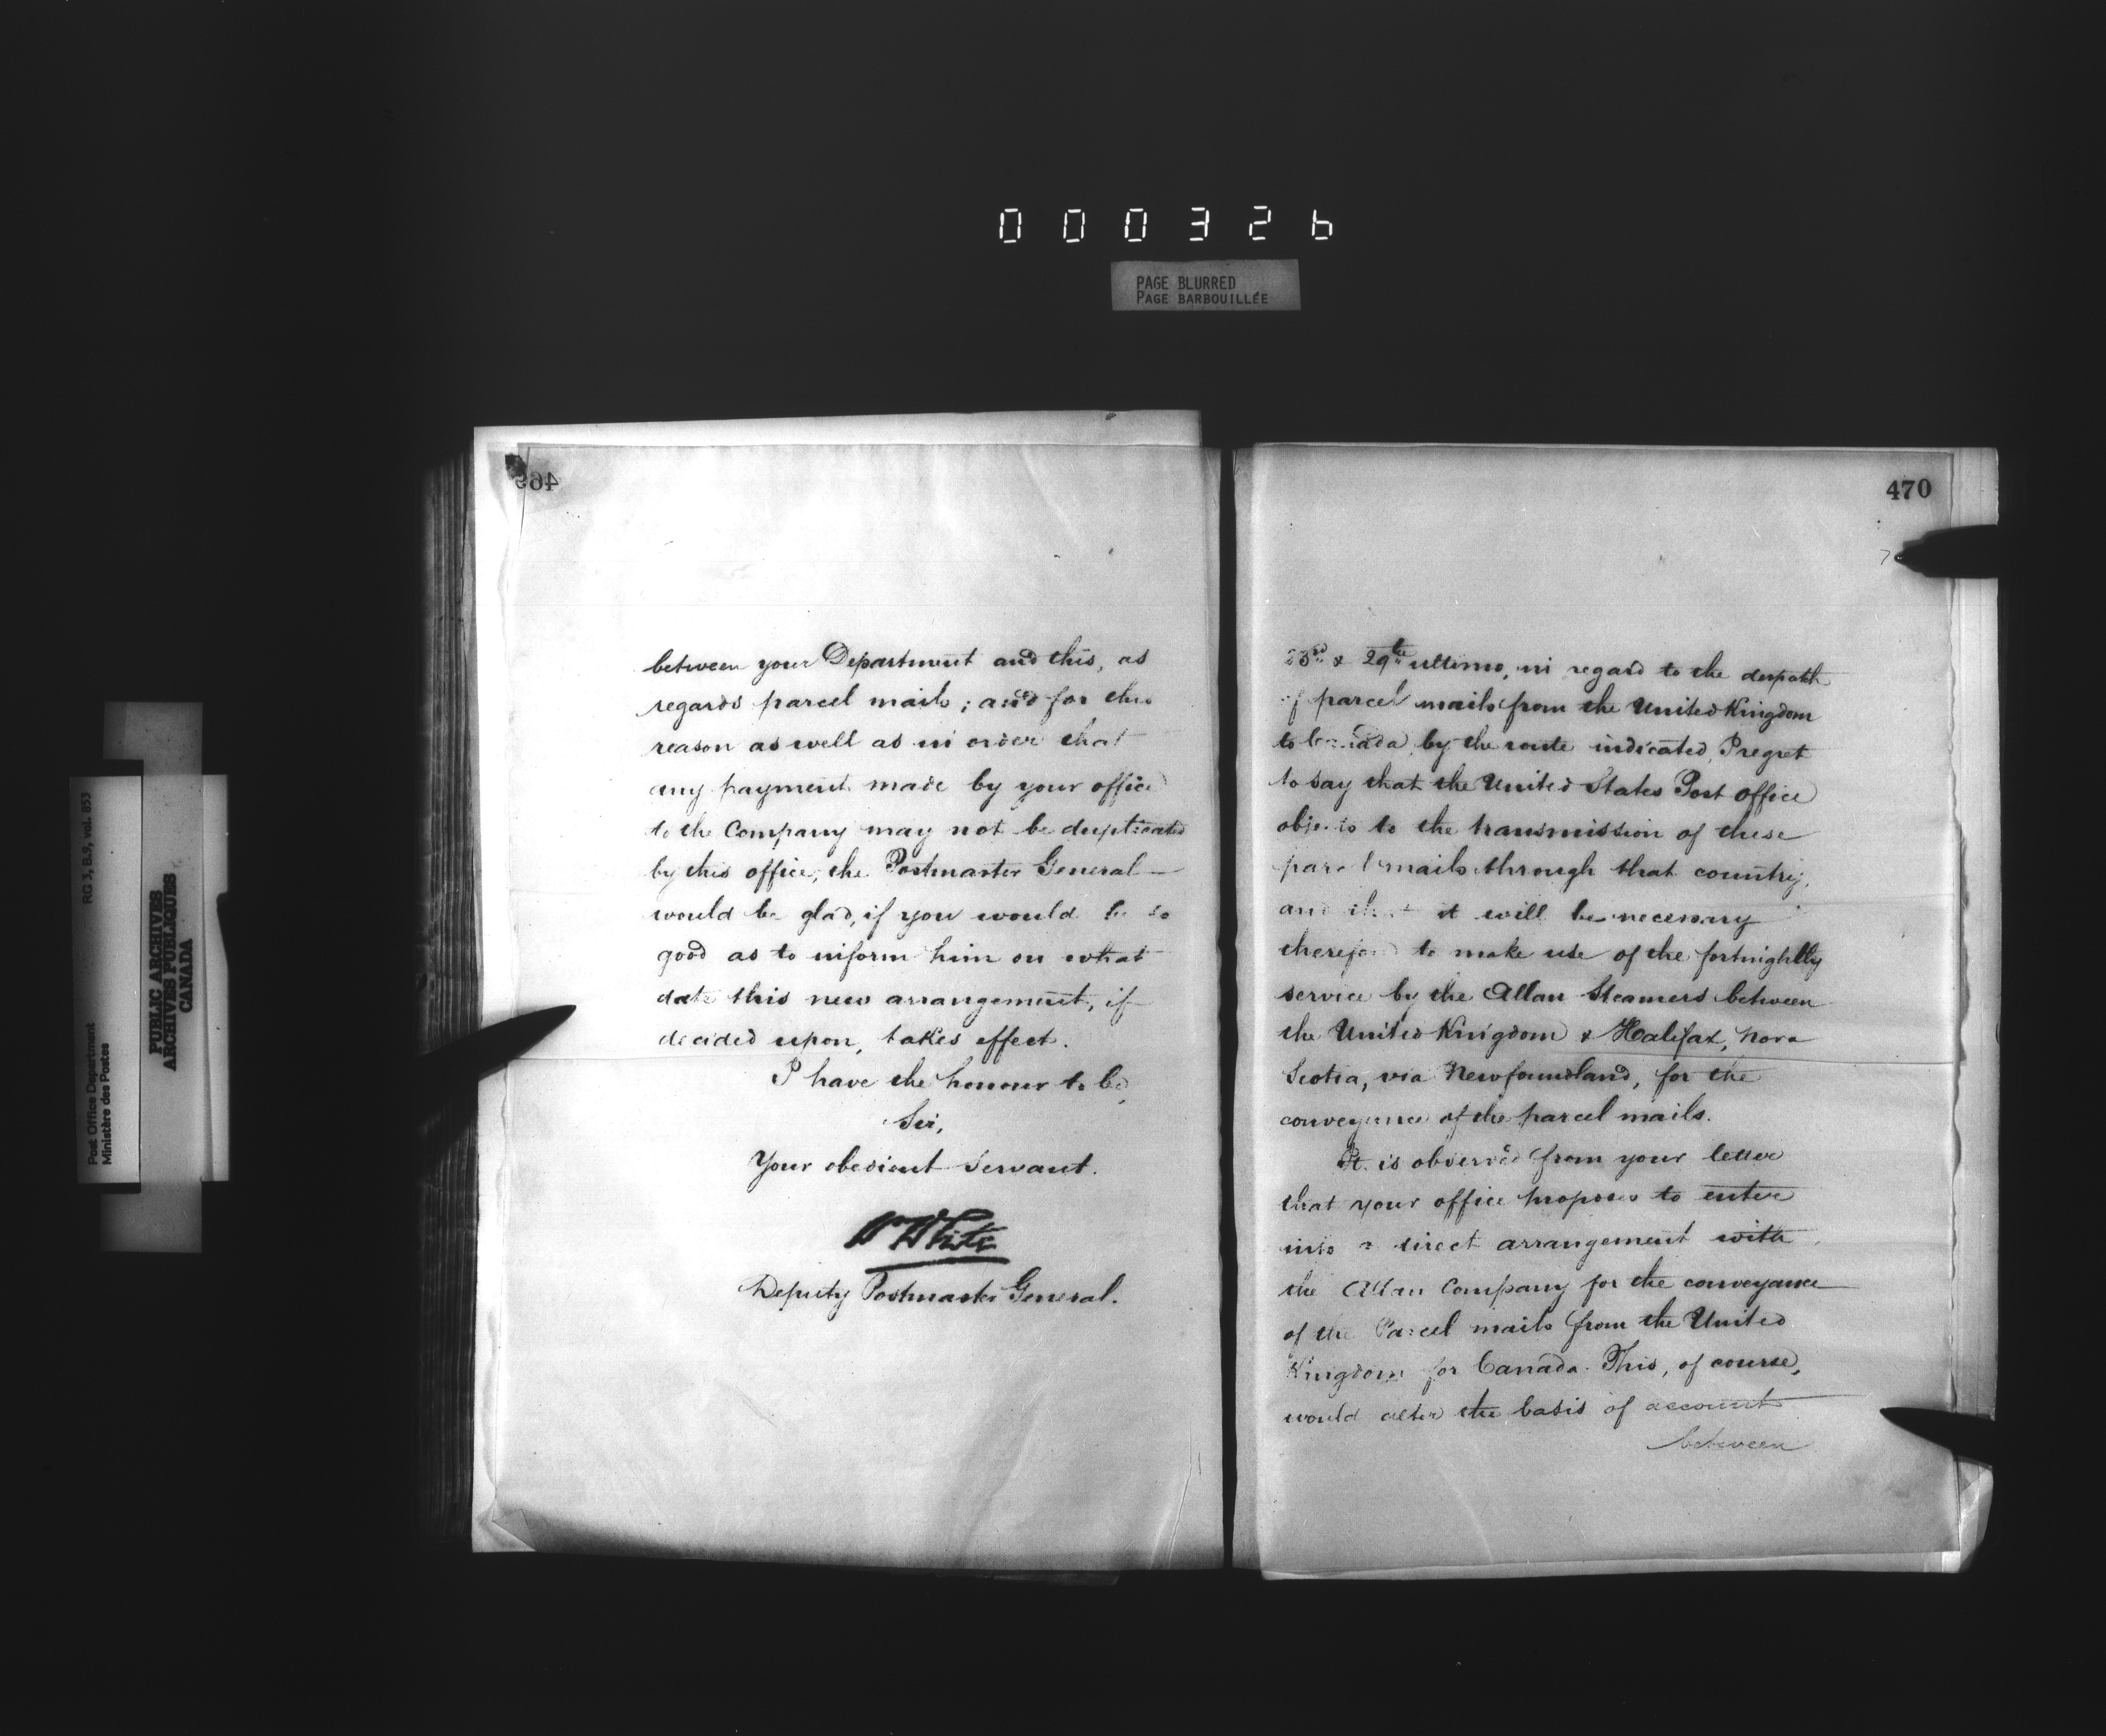 000326
PAGE BLURRED
PAGE BARBOUILLÉE
RG 3, B.9, vol. 853
Post Office Department
Ministère des Postes
PUBLIC ARCHIVES
ARCHIVES PUBLIQUES
CANADA
469
between your Department and this, as
regards parcel mails; and for this
reason as well as in order that
any payment made by your office
to the Company may not be duplicated
by this office, the Postmaster General
would be glad, if you would be so
good as to inform him on what
date this new arrangement, if
decided upon, takes effect.
I have the honour to be,
Sir,
Your obedient Servant.
W White
Deputy Postmaster General.
470
23rd & 29th ultimo, in regard to the despatch
of parcel mails from the United Kingdom
to Canada by the route indicated, I regret
to say that the United States Post Office
objects to the transmission of these
parcel mails through that country,
and that it will be necessary
therefore to make use of the fortnightly
service by the Allan Steamers between
the United Kingdom & Halifax, Nova
Scotia, via Newfoundland, for the
conveyance of the parcel mails.
It is observed from your letter
that your office proposes to enter
into a direct arrangement with
the Allan Company for the conveyance
of the Parcel mails from the United
Kingdom for Canada. This, of course,
would alter the basis of account
between